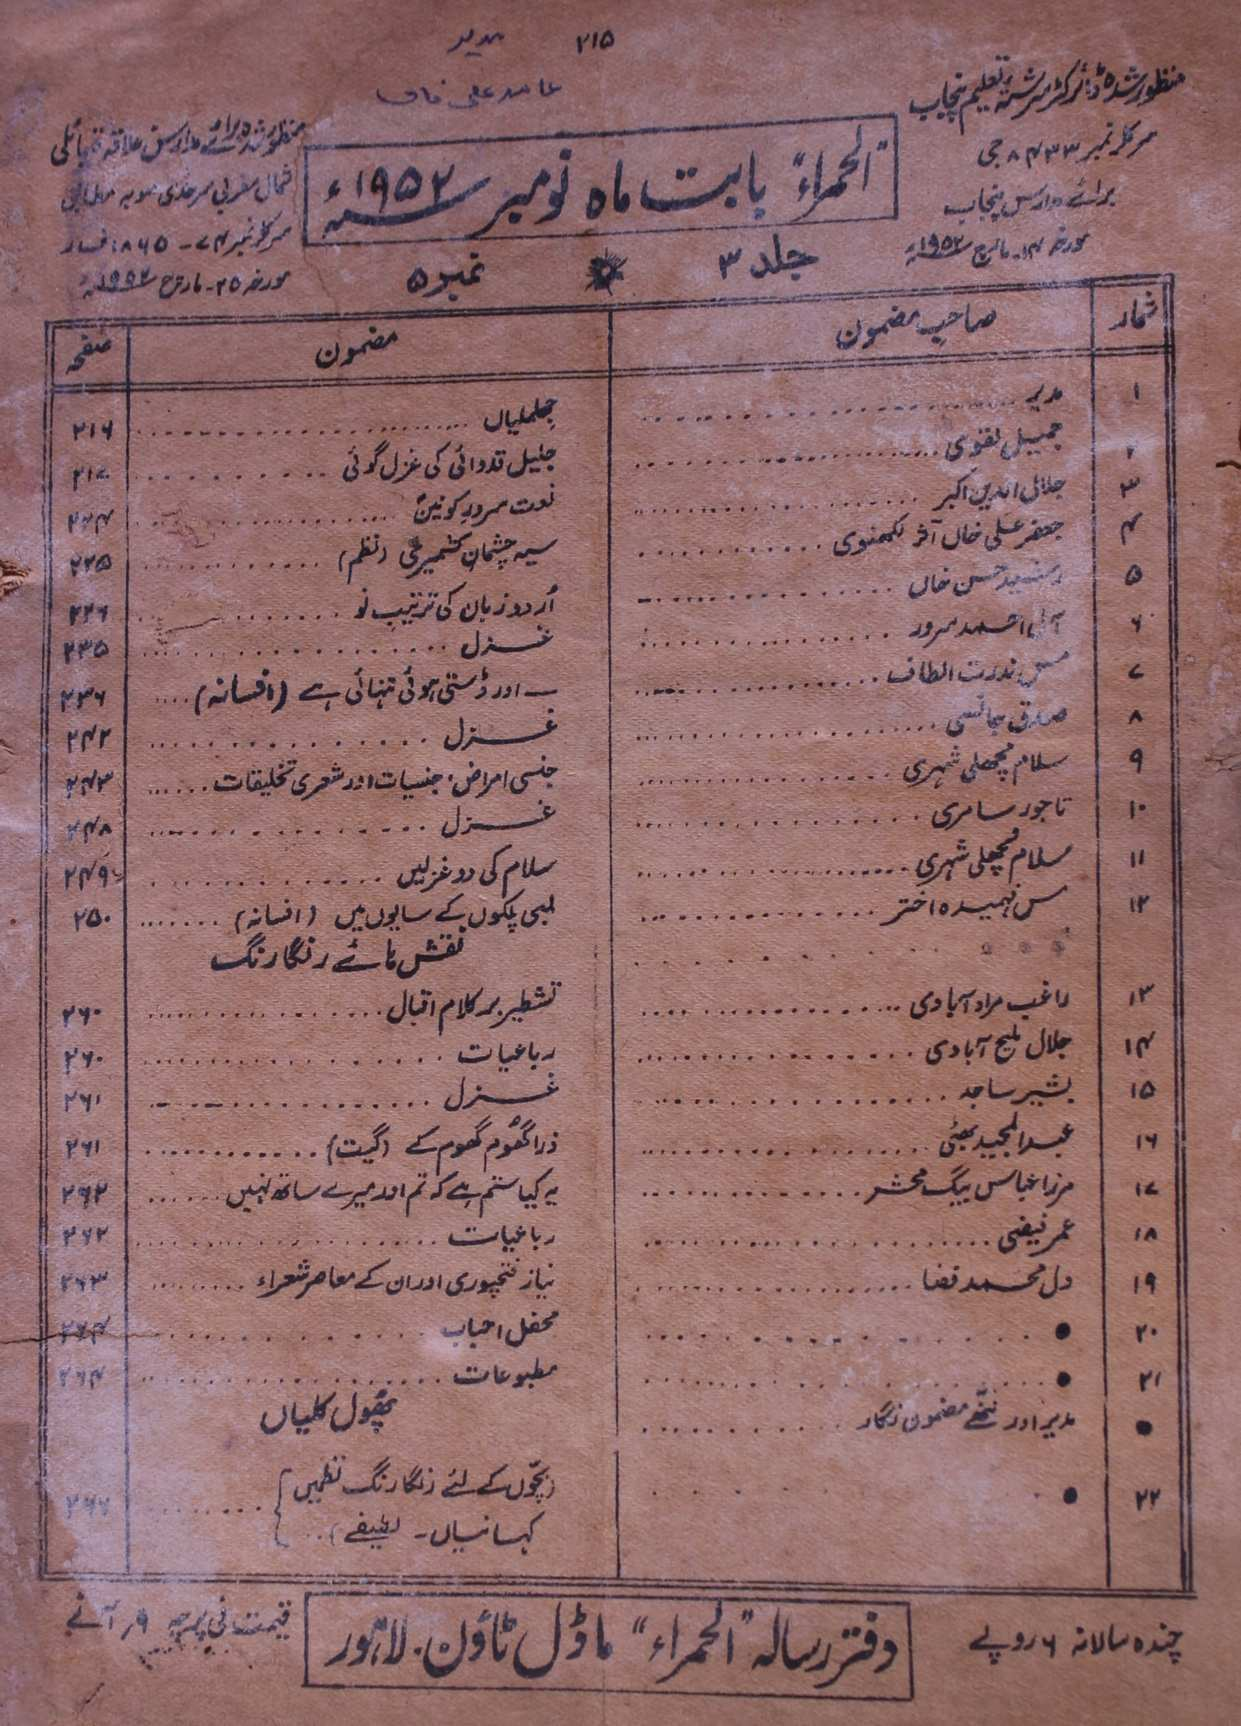 ۲۱۵
مدیر
حامد علی خاں
منظور شدہ ڈائرکٹر سررشتۂ تعلیم پنجاب
سرکلر نمبر ۸۴۳۳ جی
برائے مدارس پنجاب
مورخہ ۱۴۔ مارچ ۱۹۵۲ء
منظور شدہ برائے مدارس علاقہ قبائلی
شمال مغربی سرحدی صوبہ
سرکلر نمبر
مورخہ ۲۵۔ مارچ ۱۹۵۲ء
"الحمراء" بابت ماہ نومبر ۱۹۵۲ء
جلد ۳ نمبر ۵
شمار صاحبِ مضمون مضمون صفحہ
۱ مدیر جھلملیاں ۲۱۶
۲ جمیل نقوی جلیل قدوائی کی غزل گوئی ۲۱۷
۳ جلال الدین اکبر نعت سرورِ کونینؐ ۲۲۴
۴ جعفر علی خاں اثر لکھنوی سیہ چشمانِ کشمیری (نظم) ۲۲۵
۵ رشید حسن خاں اُردو زبان کی ترتیب نو ۲۲۶
۶ آل احمد سرور غزل ۲۳۵
۷ مس ندرت الطاف ــ اور ڈستی ہوئی تنہائی ہے (افسانہ) ۲۳۶
۸ صدق جائسی غزل ۲۴۲
۹ سلام مچھلی شہری جنسی امراض، جنسیات اور شعری تخلیقات ۲۴۳
۱۰ تاجور سامری غزل ۲۴۸
۱۱ سلام مچھلی شہری سلام کی دو غزلیں ۲۴۹
۱۲ مس فہمیدہ اختر لمبی پلکوں کے سایوں میں (افسانہ) ۲۵۰
نقش ہائے رنگا رنگ
۱۳ راغب مراد آبادی تشطیر بر کلام اقبال ۲۶۰
۱۴ جلال ملیح آبادی رباعیات ۲۶۰
۱۵ بشیر ساجد غزل ۲۶۱
۱۶ عبدالمجید بھٹی ذرا گھُوم گھوم کے (گیت) ۲۶۱
۱۷ مرزا عباس بیگ محشر یہ کیا ستم ہے کہ تم اور میرے ساتھ نہیں ۲۶۲
۱۸ عمر فیضی رباعیات ۲۶۲
۱۹ دل محمد فضا نیاز فتحپوری اور ان کے معاصر شعراء ۲۶۳
۲۰ ● محفل احباب ۲۶۴
۲۱ ● مطبوعات ۲۶۴
● مدیر اور ننھے مضمون نگار پھُول کلیاں
۲۲ ● (بچّوں کے لئے رنگا رنگ نظمیں
کہانیاں۔ لطیفے)
چندہ سالانہ ۶ روپے
دفتر رسالہ "الحمراء" ماڈل ٹاؤن۔ لاہور
قیمت فی پرچہ ۹؍ آنے